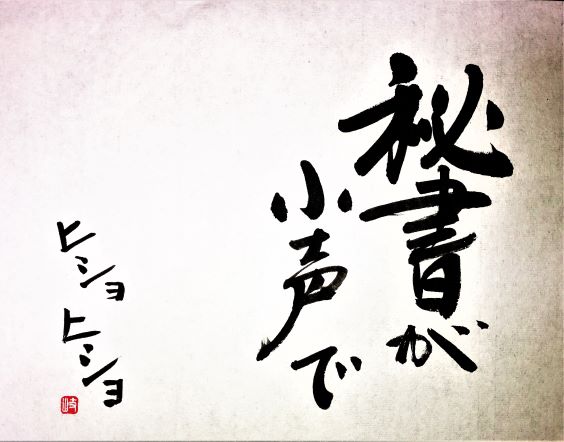 秘書が
小声で
ヒショ
ヒショ
岐